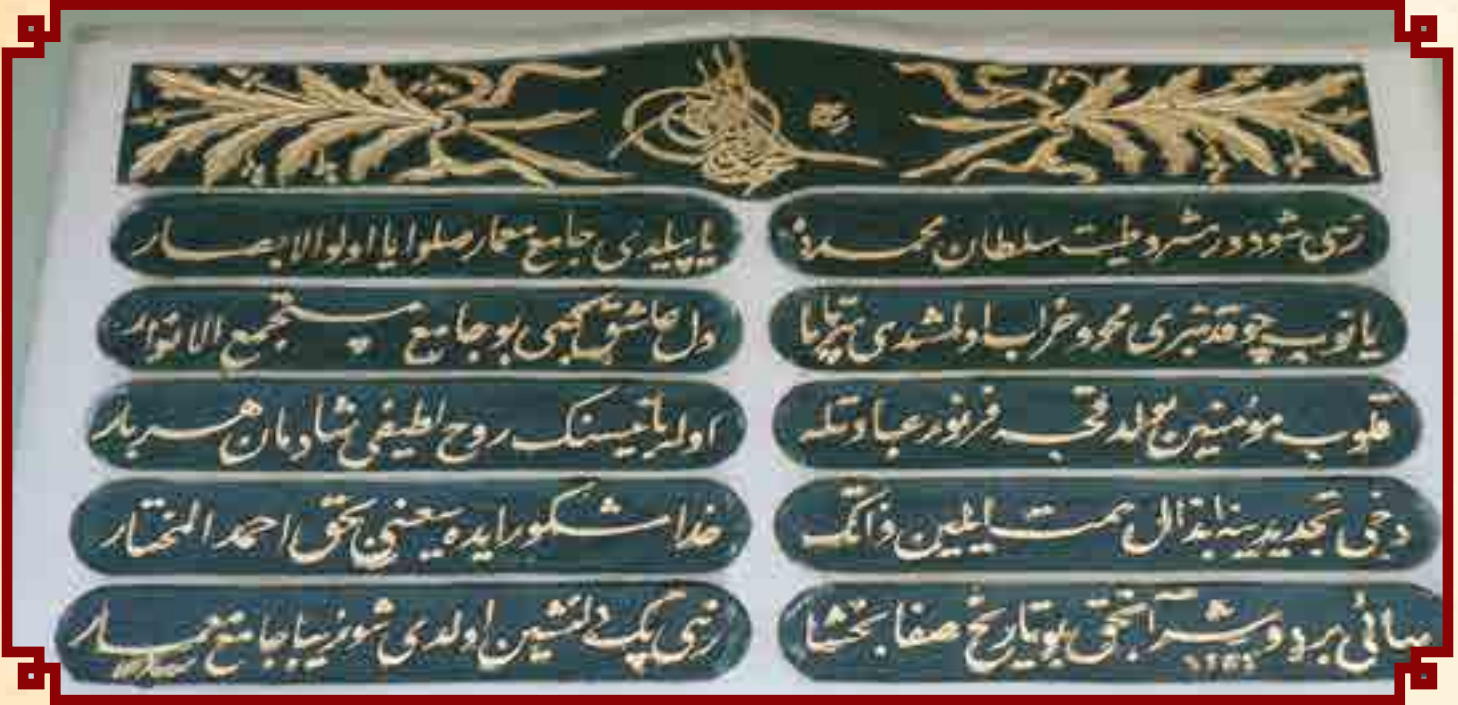 زهی شو دور مشروطیت سلطان محمدده
یاپیلدی جامع معمار صلوا یا اولوالابصار
یانوب چوقدنبری محو و خراب اولمشدی سرتاپا
دل عاشق کبی بو جامع مستجمع الانوار
قلوب مؤمنین عبادتله
اولر بانیسنک روح لطیفی شادمان هر بار
دخی تجدیدینه ابذال همت ایلین ذاتک
خدا مشکور ایده سعینی بحق احمد المختار
بو تاریخ صفا بخشا
زهی پک دلنشین اولدی شو زیبا جامع معمار